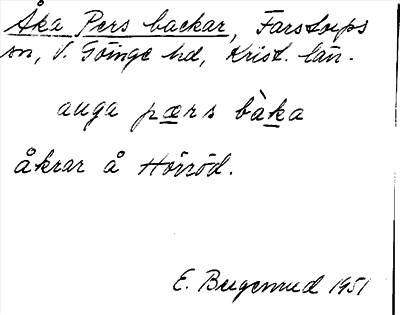 Åka Pers backar, Farstorps
sn, V. Göinge hd, Krist. län.
auga pærs bàka
åkrar å Horröd.
E. 1951